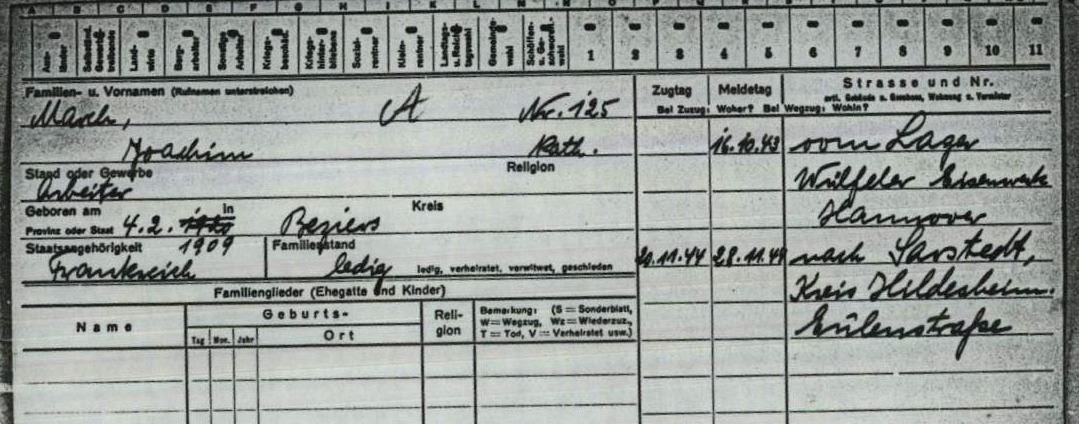 A B C D E F G H I K L M N O
Aus- länder
Selbständ. Gewerbe- treibende
Land- wirte
Berg- arbeiter
Sonstige Arbeiter
Kriegs- beschäd.
Kriegs- hinter- bliebene
Sozial- rentner
Klein- rentner
Landtags- u. Reichs- tagswahl
Gemeinde- wahl
Schöffen- u. Ge- schworn.- wahl
1 2 3 4 5 6 7 8 9 10 11
Familien- u. Vornamen (Rufnamen unterstreichen)
March, A Nr. 125
Joachim Kath.
Stand oder Gewerbe Religion
Arbeiter
Geboren am in Kreis
Provinz oder Staat 4.2. 1920 Beziers
Staatsangehörigkeit 1909 Familienstand
Frankreich ledig ledig, verheiratet, verwitwet, geschieden
Familienglieder (Ehegatte und Kinder)
Name
Geburts-
Tag Mon. Jahr Ort
Reli- gion
Bemerkung: (S = Sonderblatt,
W = Wegzug, Wz = Wiederzuz.,
T = Tod, V = Verheiratet usw.)
Zugtag Meldetag Strasse und Nr.
Bei Zuzug: Woher? Bei Wegzug: Wohin?
16.10.43 vom Lager
Wülfeler Eisenwerk
Hannover
20.11.44 28.11.44 nach Sarstedt,
Kreis Hildesheim.
Eulenstraße